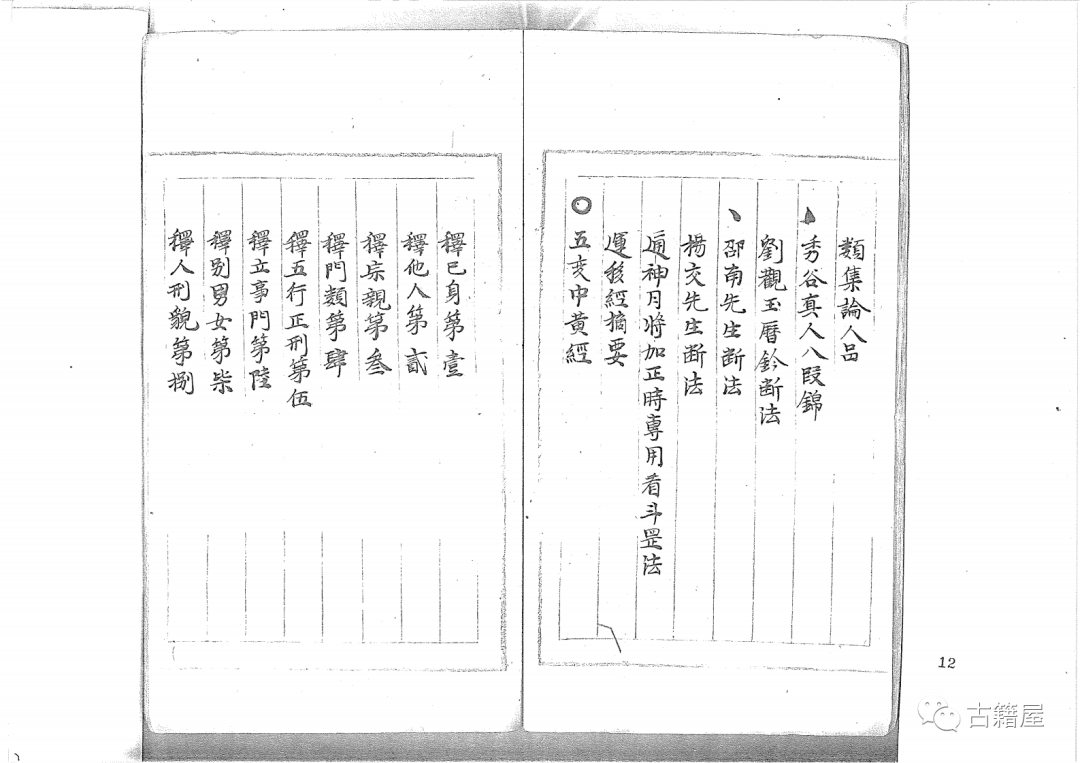 類集論人品
秀谷真人八段錦
劉觀玉曆鈐断法
邵南先生断法
楊交先生断法
通神月將加正時専用看斗罡法
運移經摘要
五变中黄經
釋已身第壹
釋他人第貳
釋宗親第叁
釋門類第肆
釋五行正刑第伍
釋立事門第陸
釋别男女第柒
釋人刑貌第捌
12
古籍屋